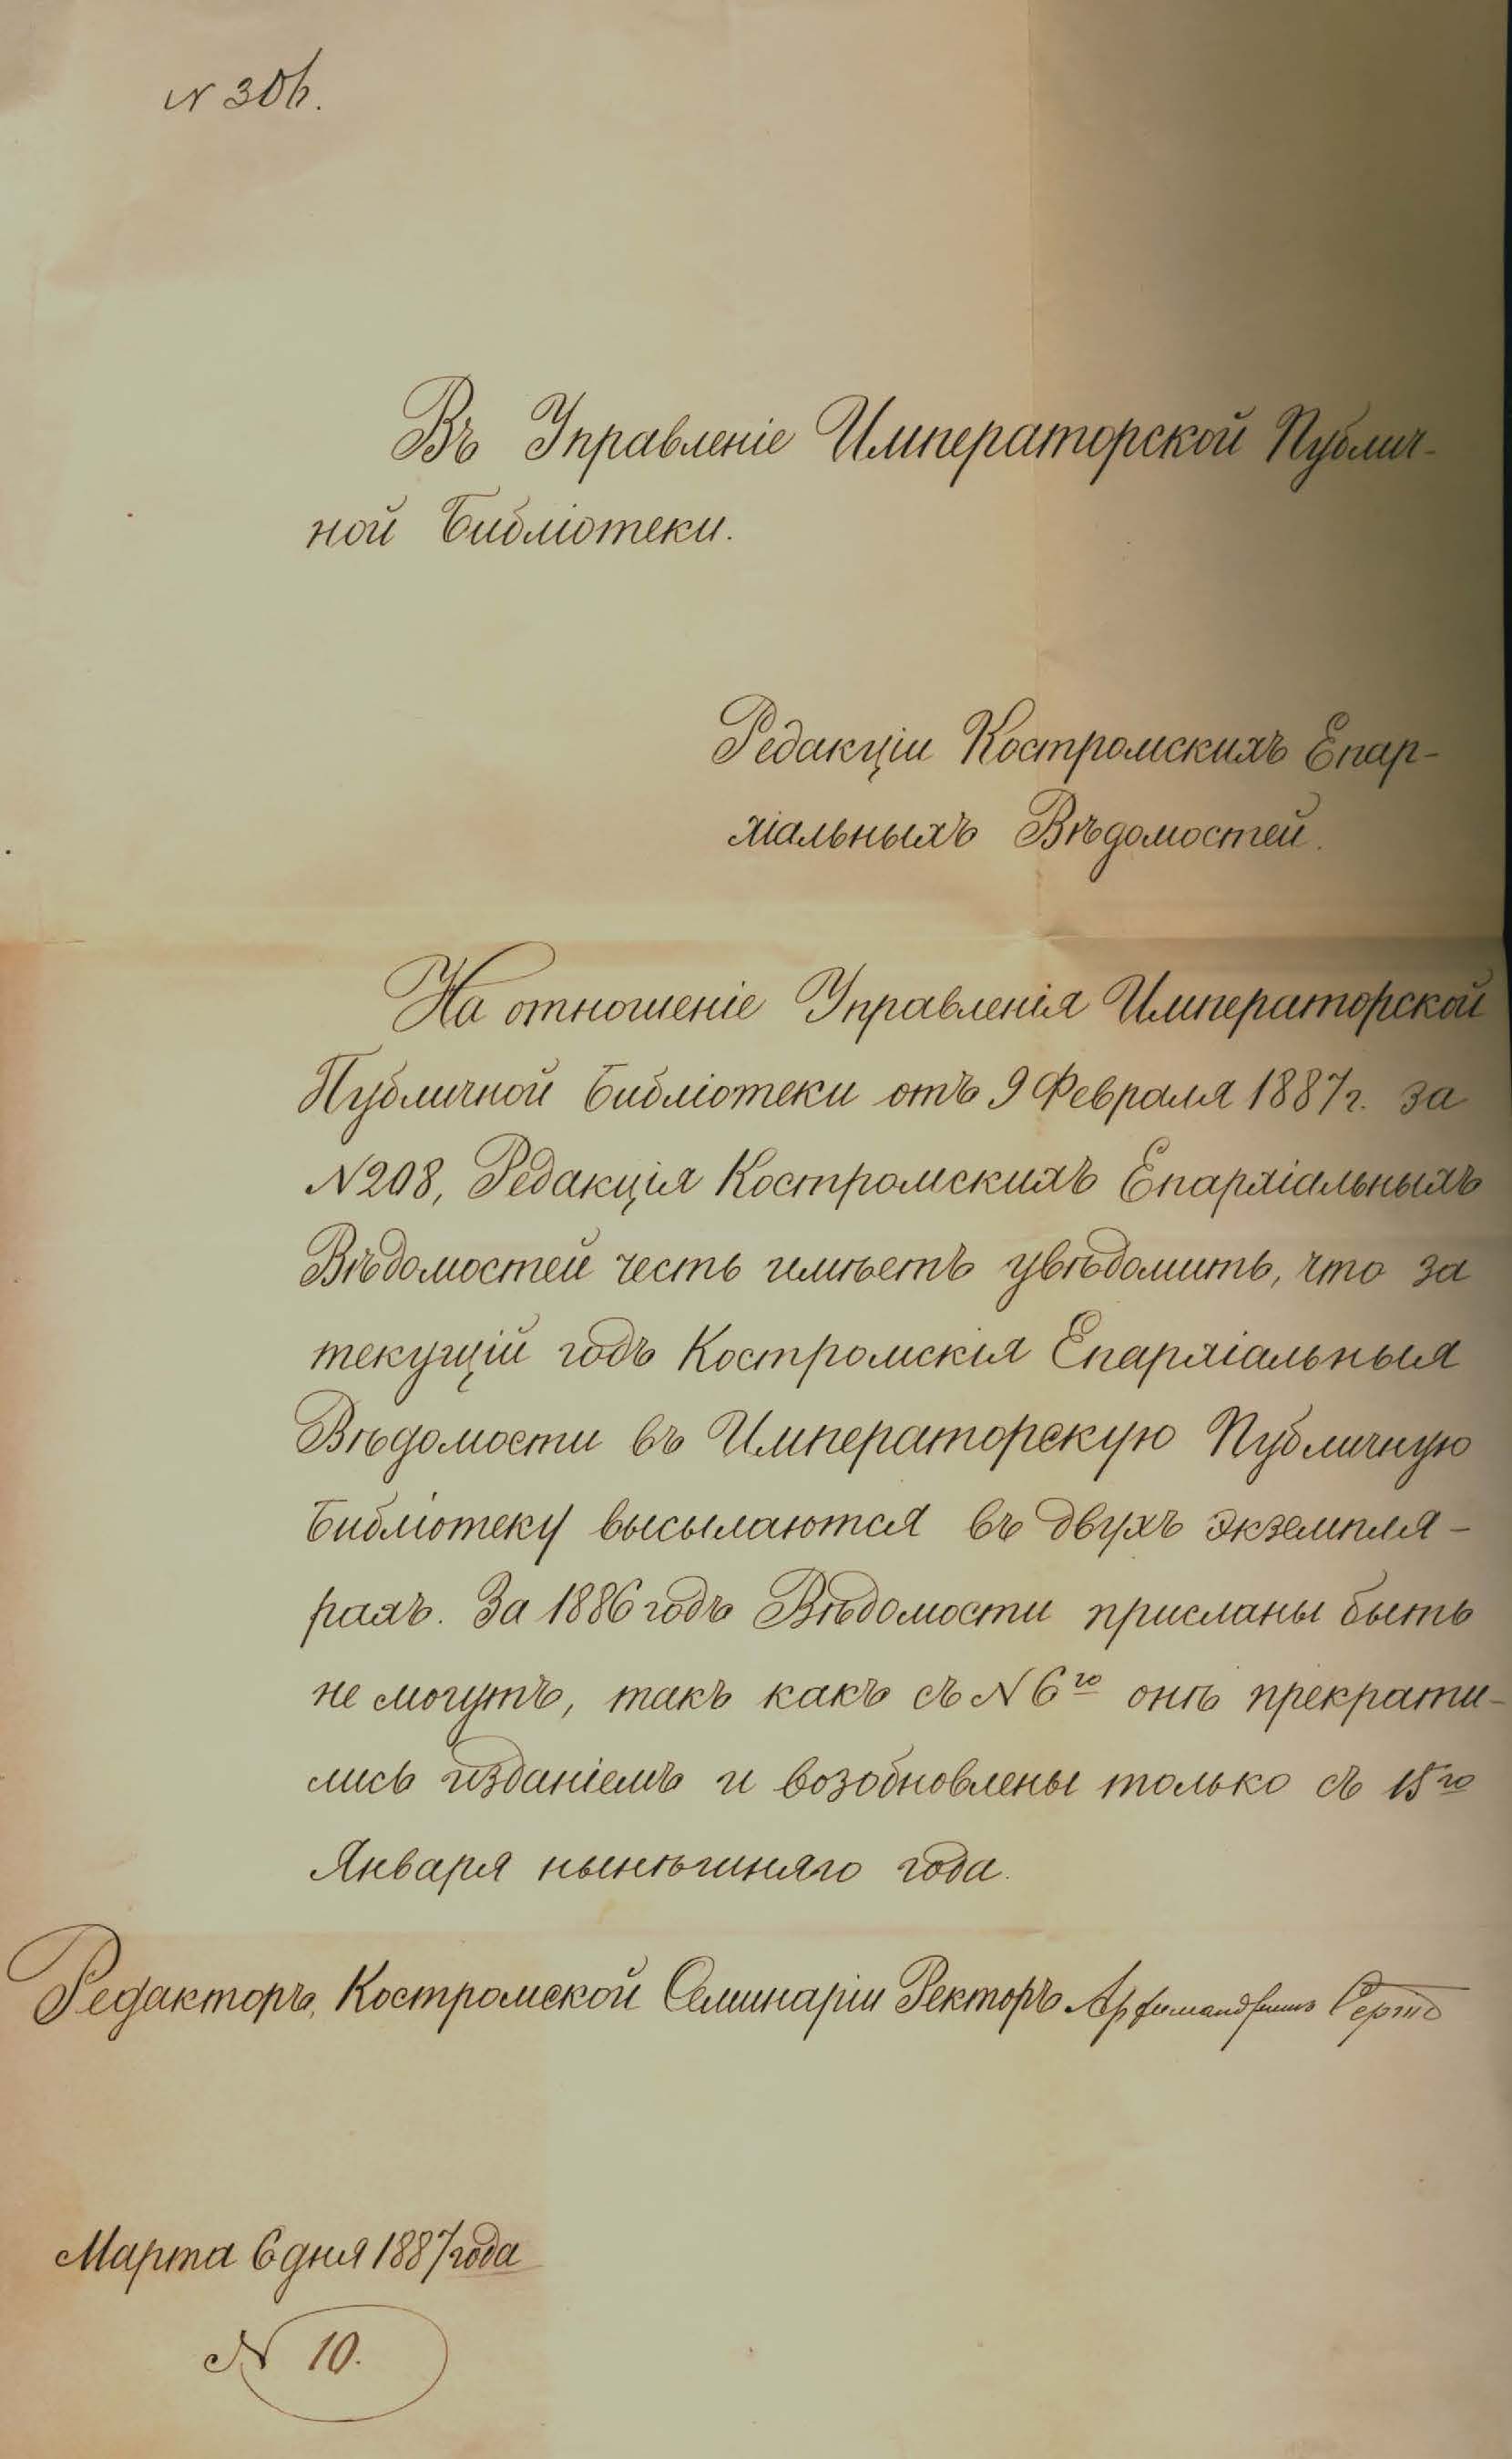 N 306.
Въ Управленіе Императорской Публич-
ной Библіотеки.
Редакціи Костромскихъ Епар-
хіальныхъ Вѣдомостей.
На отношеніе Управленія Императорской
Публичной Библіотеки отъ 9 Февраля 1887 г. за
N 208, Редакція Костромскихъ Епархіальныхъ
Вѣдомостей честь имѣетъ увѣдомить, что за
текущій годъ Костромскія Епархіальныя
Вѣдомости въ Императорскую Публичную
Библіотеку высылаются въ двухъ экземпля-
рахъ. За 1886 годъ Вѣдомости присланы быть
не могутъ, такъ какъ съ N 6го онѣ прекрати-
лись изданіемъ и возобновлены только съ 15го
Января нынѣшняго года.
Редакторъ, Костромской Семинаріи Ректоръ Архимандритъ
Марта 6 дня 1887 года
N 10.